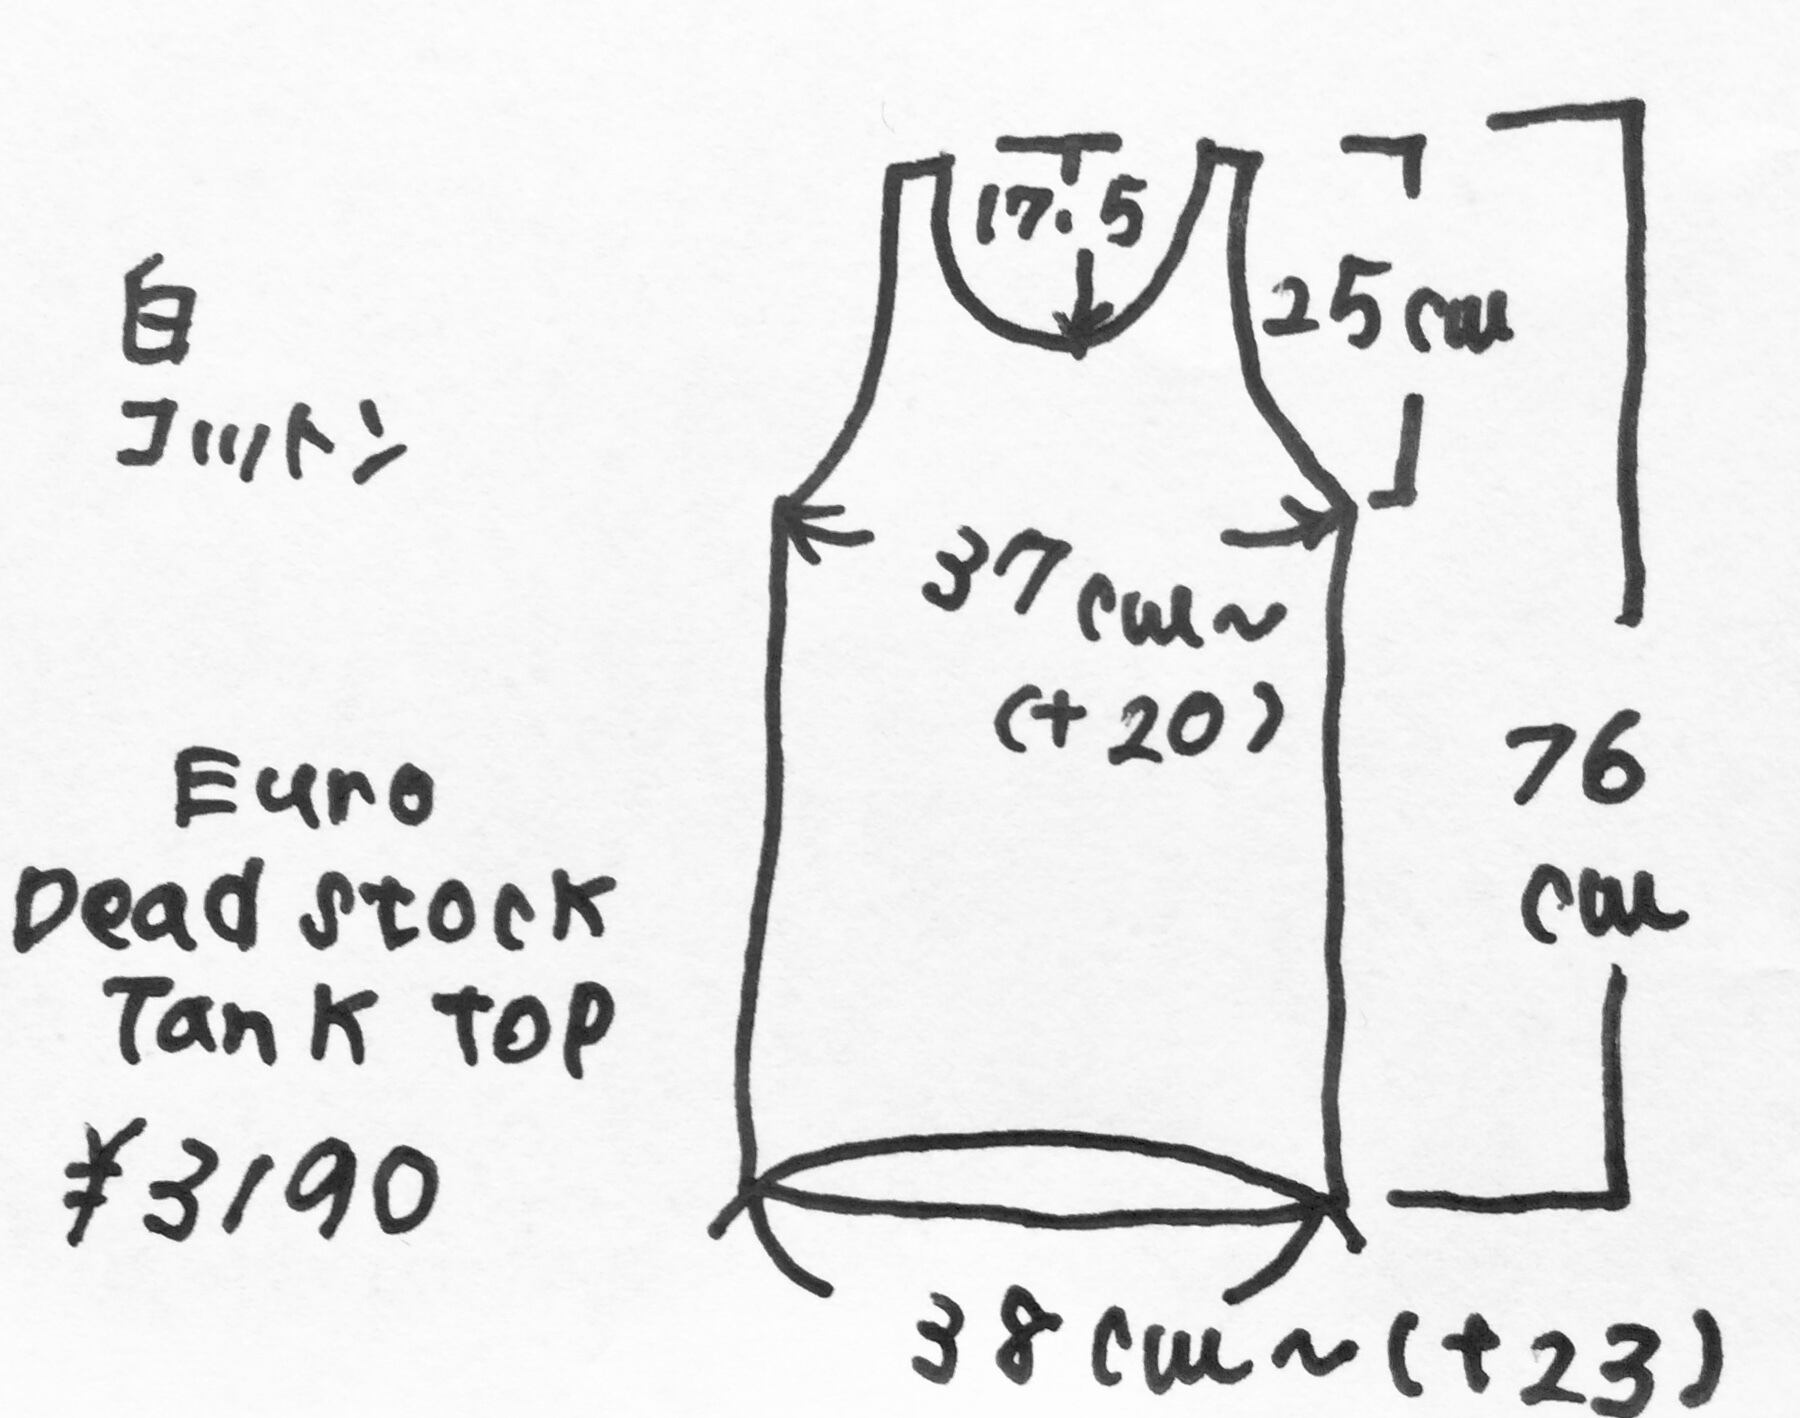 白
コットン
Euro
Dead stock
Tank top
¥3190
17.5
25cm
37cm~
(+20)
76
cm
38cm~(+23)